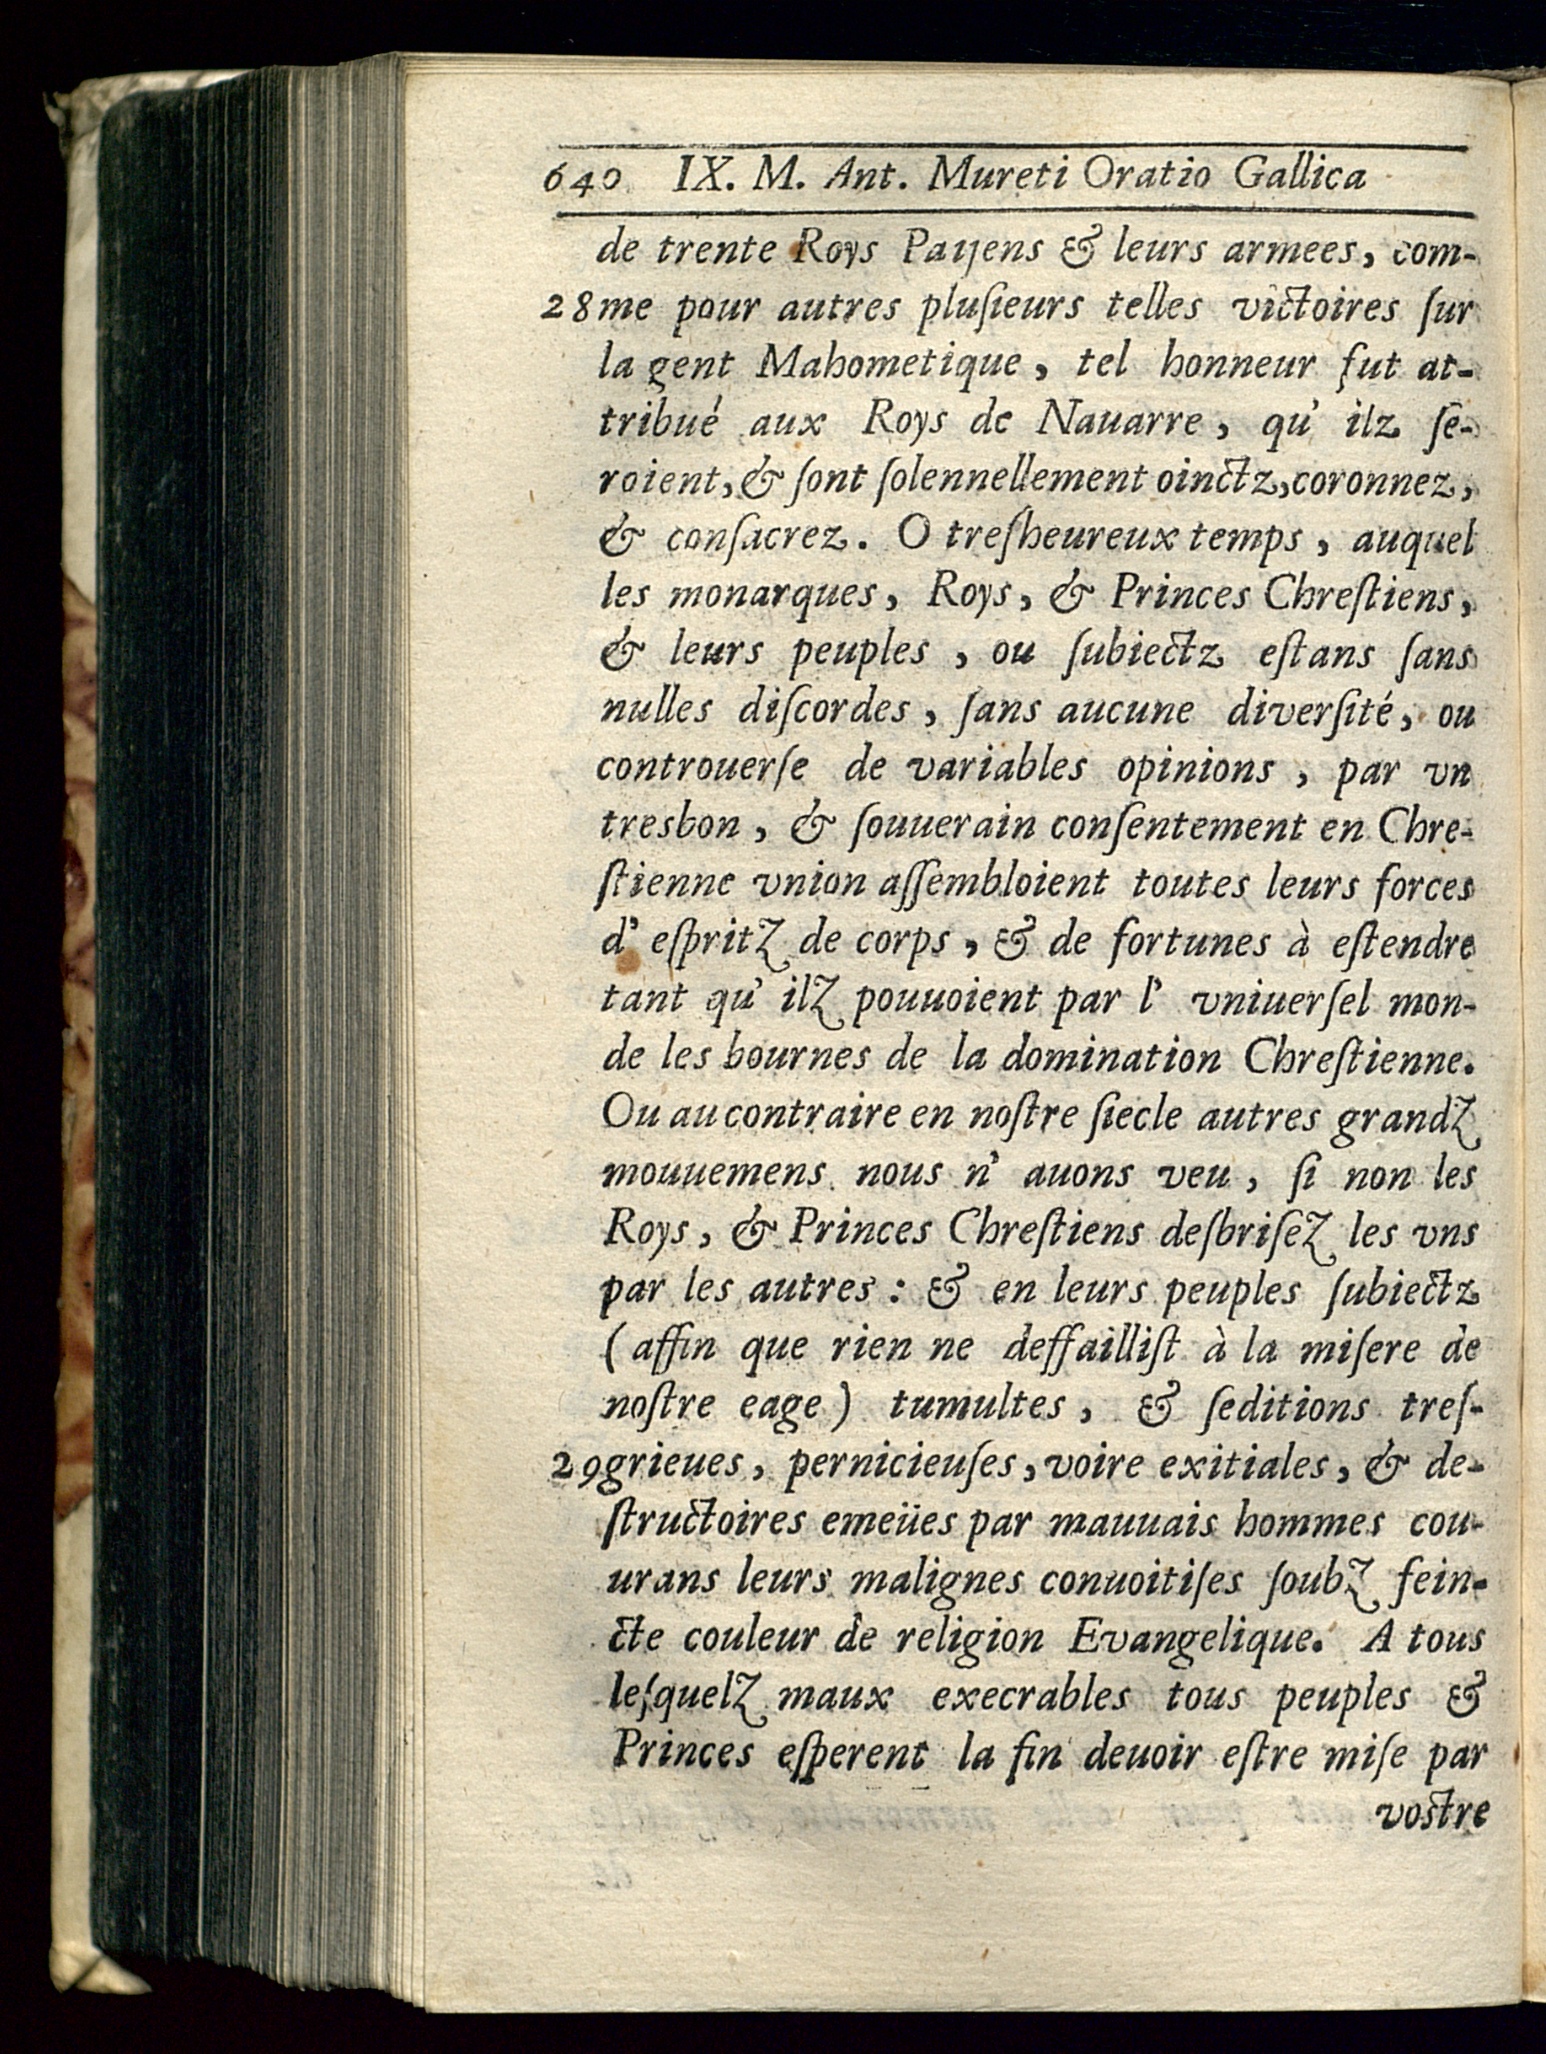 640 IX. M. Ant. Mureti Oratio Gallica
de trente Roys Paijens & leurs armees, com-
28 me pour autres pluſieurs telles victoires ſur
la gent Mahometique, tel honneur fut at-
tribué aux Roys de Nauarre, qu' ilz ſe-
roient, & ſont ſolennellement oinctz, coronnez,
& conſacrez. O treſheureux temps, auquel
les monarques, Roys, & Princes Chreſtiens,
& leurs peuples, ou ſubiectz eſtans ſans
nulles diſcordes, ſans aucune diverſité, ou
controuerſe de variables opinions, par vn
tresbon, & ſouuerain conſentement en Chre-
ſtienne vnion aſſembloient toutes leurs forces
d' eſpritz de corps, & de fortunes à eſtendre
tant qu' ilz pouuoient par l' vniuerſel mon-
de les bournes de la domination Chreſtienne.
Ou au contraire en noſtre ſiecle autres grandz
mouuemens nous n' auons veu, ſi non les
Roys, & Princes Chreſtiens deſbriſez les vns
par les autres : & en leurs peuples ſubiectz
(affin que rien ne deffailliſt à la miſere de
noſtre eage) tumultes, & ſeditions treſ-
29 grieues, pernicieuſes, voire exitiales, & de-
ſtructoires emeües par mauuais hommes cou-
urans leurs malignes conuoitiſes ſoubz fein-
cte couleur de religion Evangelique. A tous
leſquelz maux execrables tous peuples &
Princes eſperent la fin deuoir eſtre miſe par
vostre